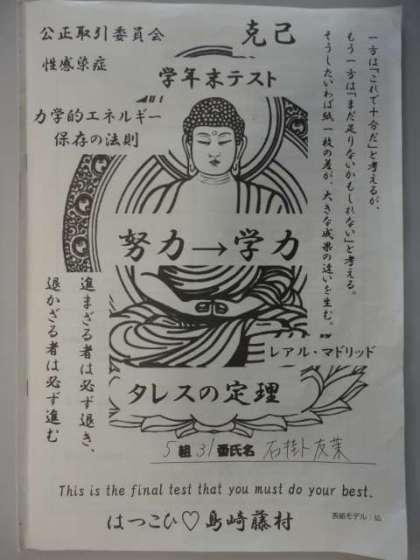 公正取引委員会
克己
性感染症
学年末テスト
力学的エネルギー
保存の法則
一方は「これで十分だ」と考えるが、
もう一方は「まだ足りないかもしれない」と考える。
そうしたいわば紙一枚の差が、大きな成果の違いを生む。
努力→学力
進まざる者は必ず退き、
退かざる者は必ず進む
レアル・マドリッド
タレスの定理
5組31番氏名 石掛友葉
This is the final test that you must do your best.
はつこひ♡島崎藤村
表紙モデル: